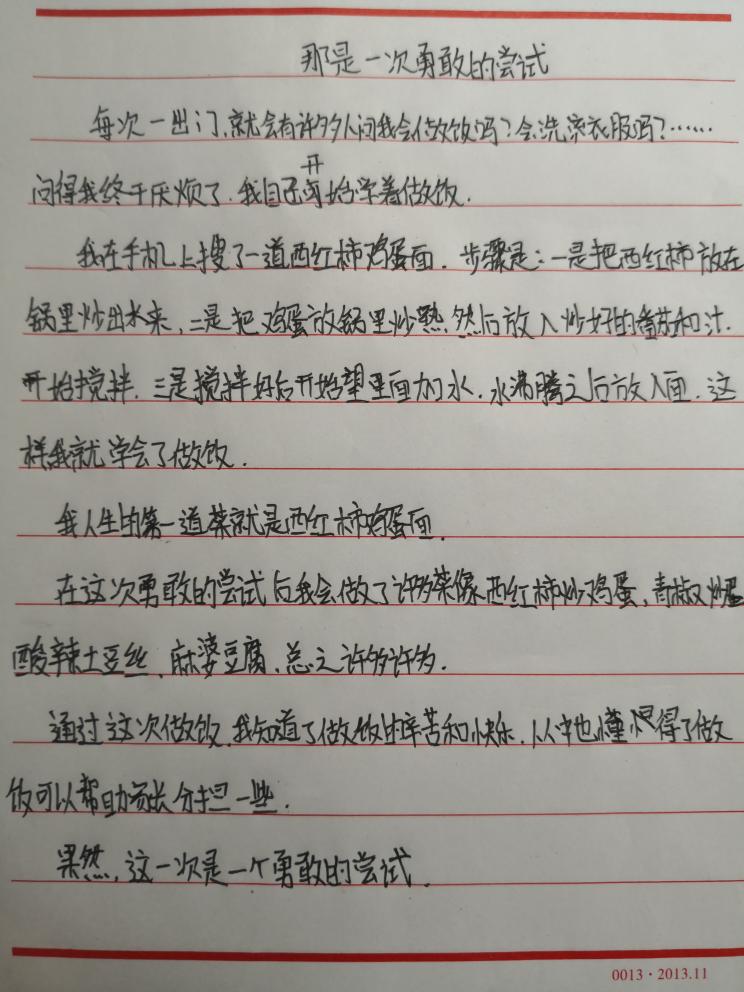 那是一次勇敢的尝试
每次一出门,就会有许多人问我会做饭吗?会洗衣服吗?……
问得我终于厌烦了.我自己开始学着做饭.
我在手机上搜了一道西红柿鸡蛋面.步骤是:一是把西红柿放在
锅里炒出水来,二是把鸡蛋放锅里炒熟,然后放入炒好的番茄和汁.
开始搅拌.三是搅拌好后开始望里面加水.水沸腾之后放入面.这
样我就学会了做饭.
我人生的第一道菜就是西红柿鸡蛋面.
在这次勇敢的尝试后我会做了许多菜像西红柿炒鸡蛋,青椒炒蛋
酸辣土豆丝,麻婆豆腐,总之许多许多.
通过这次做饭,我知道了做饭的辛苦和快乐,从中也懂得了做
饭可以帮助家长分担一些.
果然,这一次是一个勇敢的尝试.
0013·2013.11